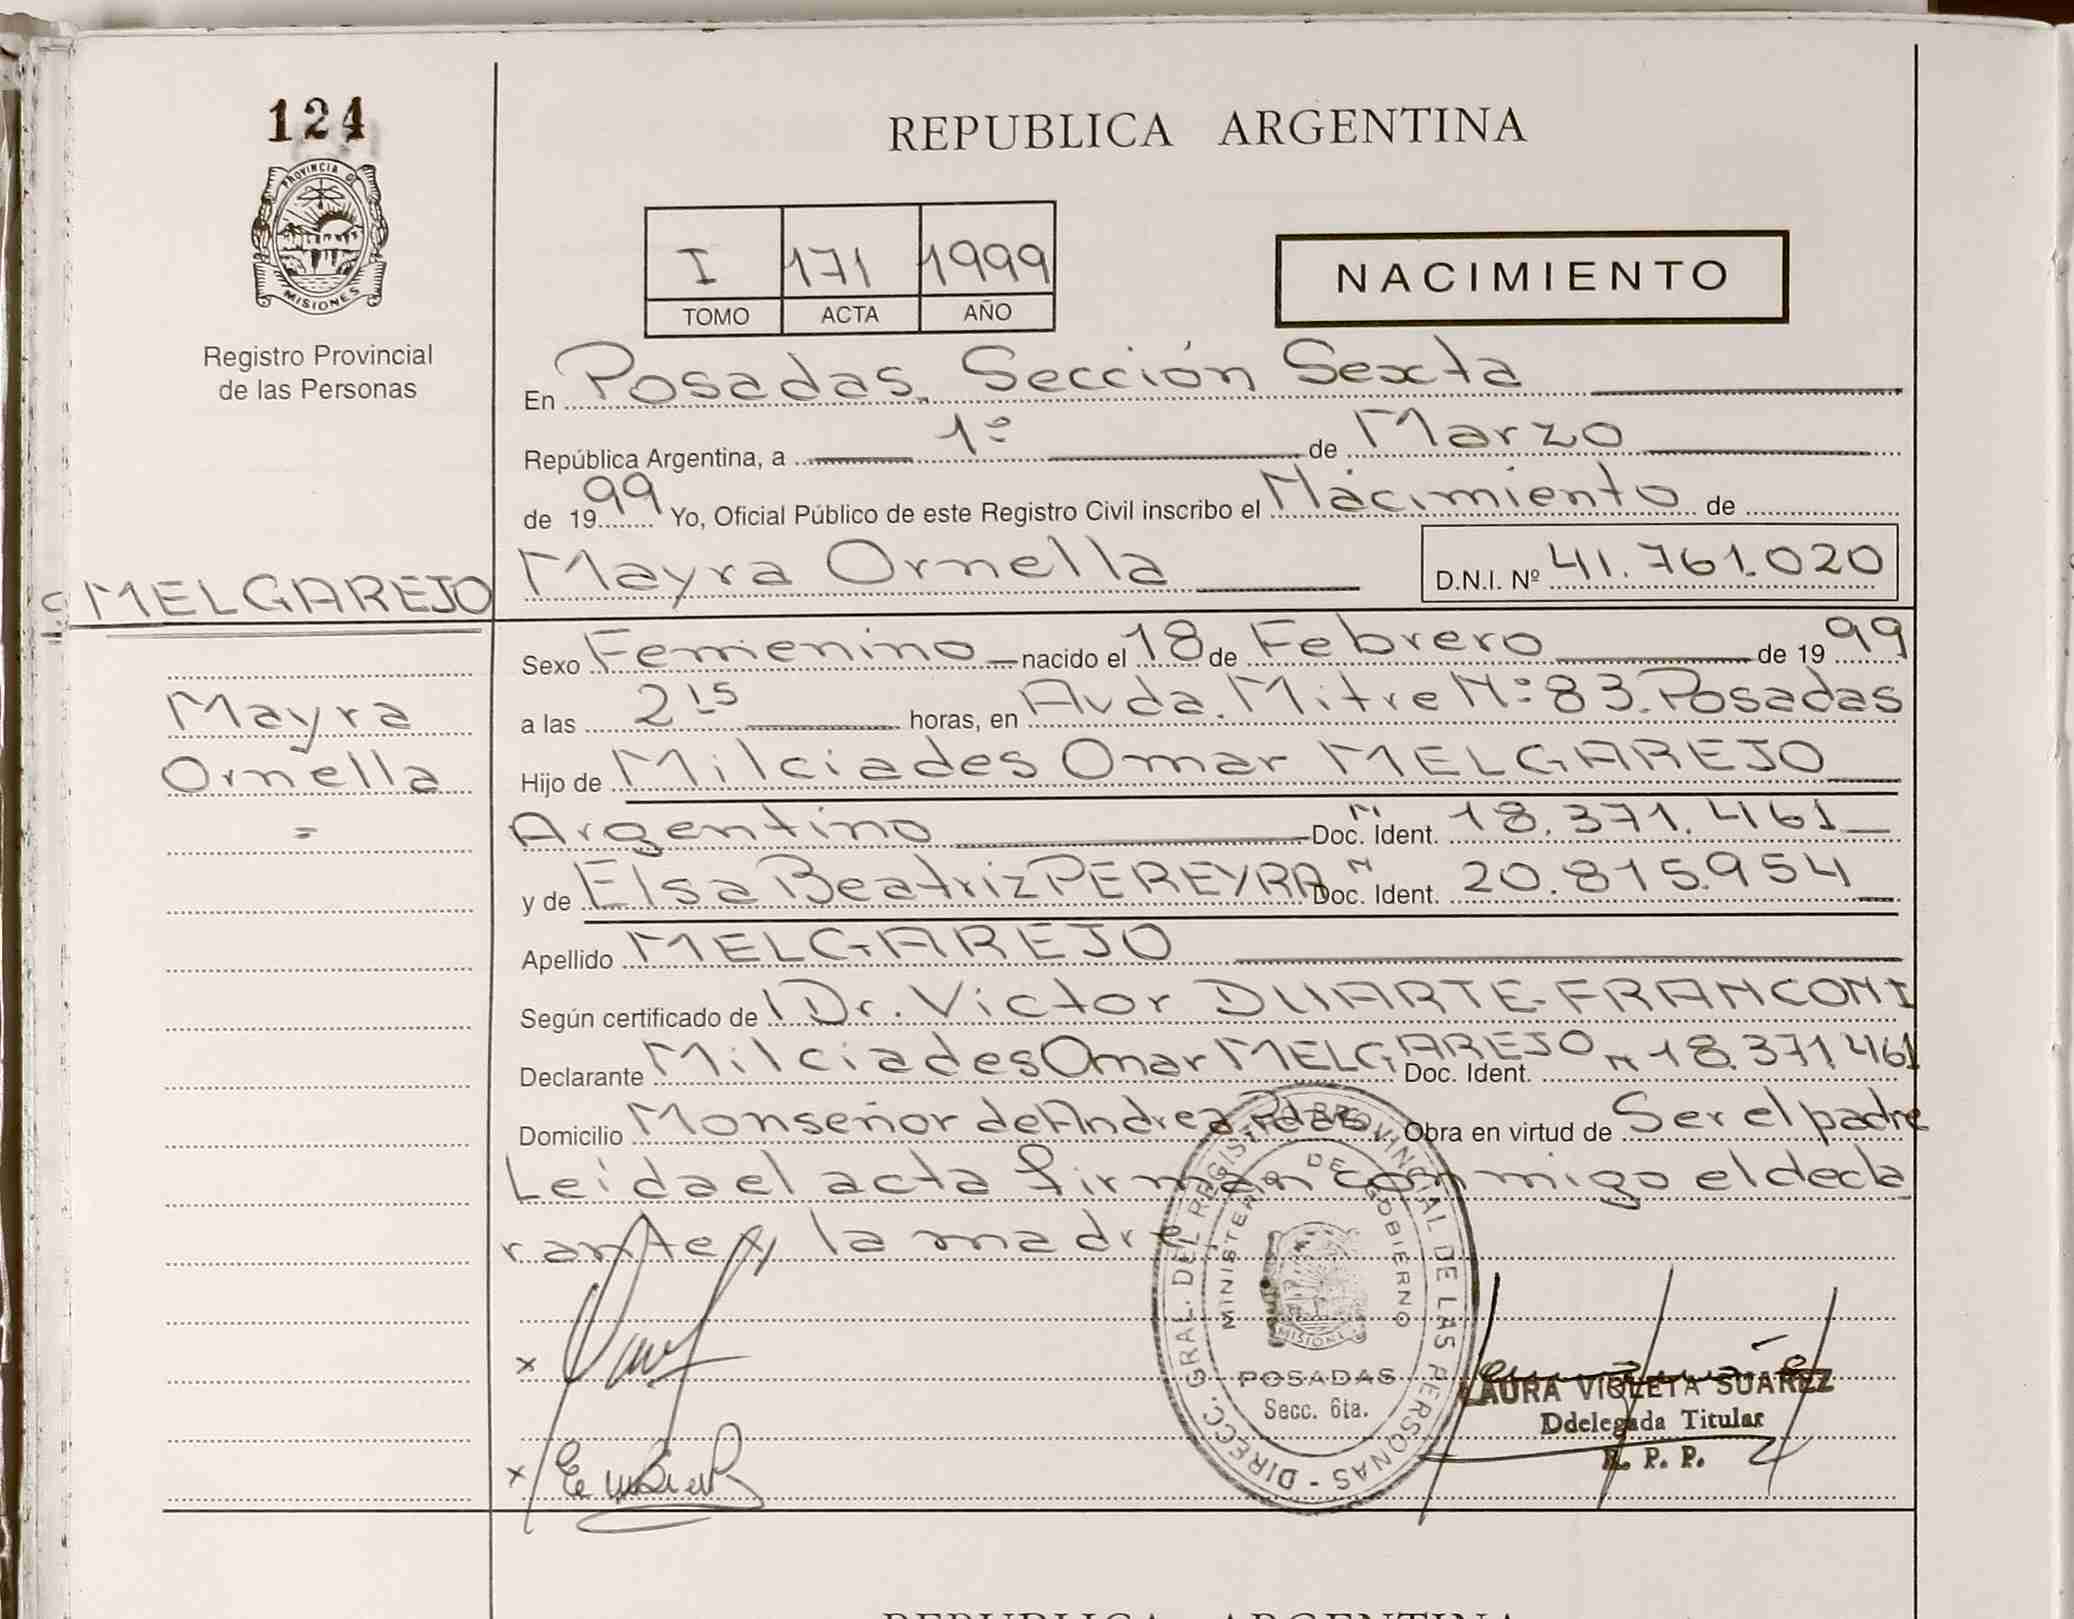 124
PROVINCIA D
MISIONES
Registro Provincial
de las Personas
REPUBLICA ARGENTINA
I 171 1999
TOMO ACTA AÑO
NACIMIENTO
En Posadas, Sección Sexta
República Argentina, a 1º de Marzo
de 1999 Yo, Oficial Público de este Registro Civil inscribo el Nacimiento de
MELGAREJO
Mayra Ornella D.N.I. Nº 41.761.020
Sexo Femenino nacido el 18 de Febrero de 1999
Mayra
Ornella
=
a las 2 15 horas, en Avda. Mitre Nº 83. Posadas
Hijo de Milciades Omar MELGAREJO
Argentino Doc. Ident. M 18.371.461
y de Elsa Beatriz PEREYRA Doc. Ident. M 20.815.954
Apellido MELGAREJO
Según certificado de Dr. Victor DUARTE-FRANCONI
Declarante Milciades Omar MELGAREJO Doc. Ident. M 18.371.461
Domicilio Monseñor de Andrea, Pdas. Obra en virtud de Ser el padre
Leida el acta firman conmigo el decla
rante y la madre
x
x
DIRECC. GRAL. DEL REGISTRO PROVINCIAL DE LAS PERSONAS -
MINISTERIO DE GOBIERNO
MISIONES
POSADAS
Secc. 6ta.
LAURA VIOLETA SUAREZ
Ddelegada Titular
R. P. P.
REPUBLICA ARGENTINA